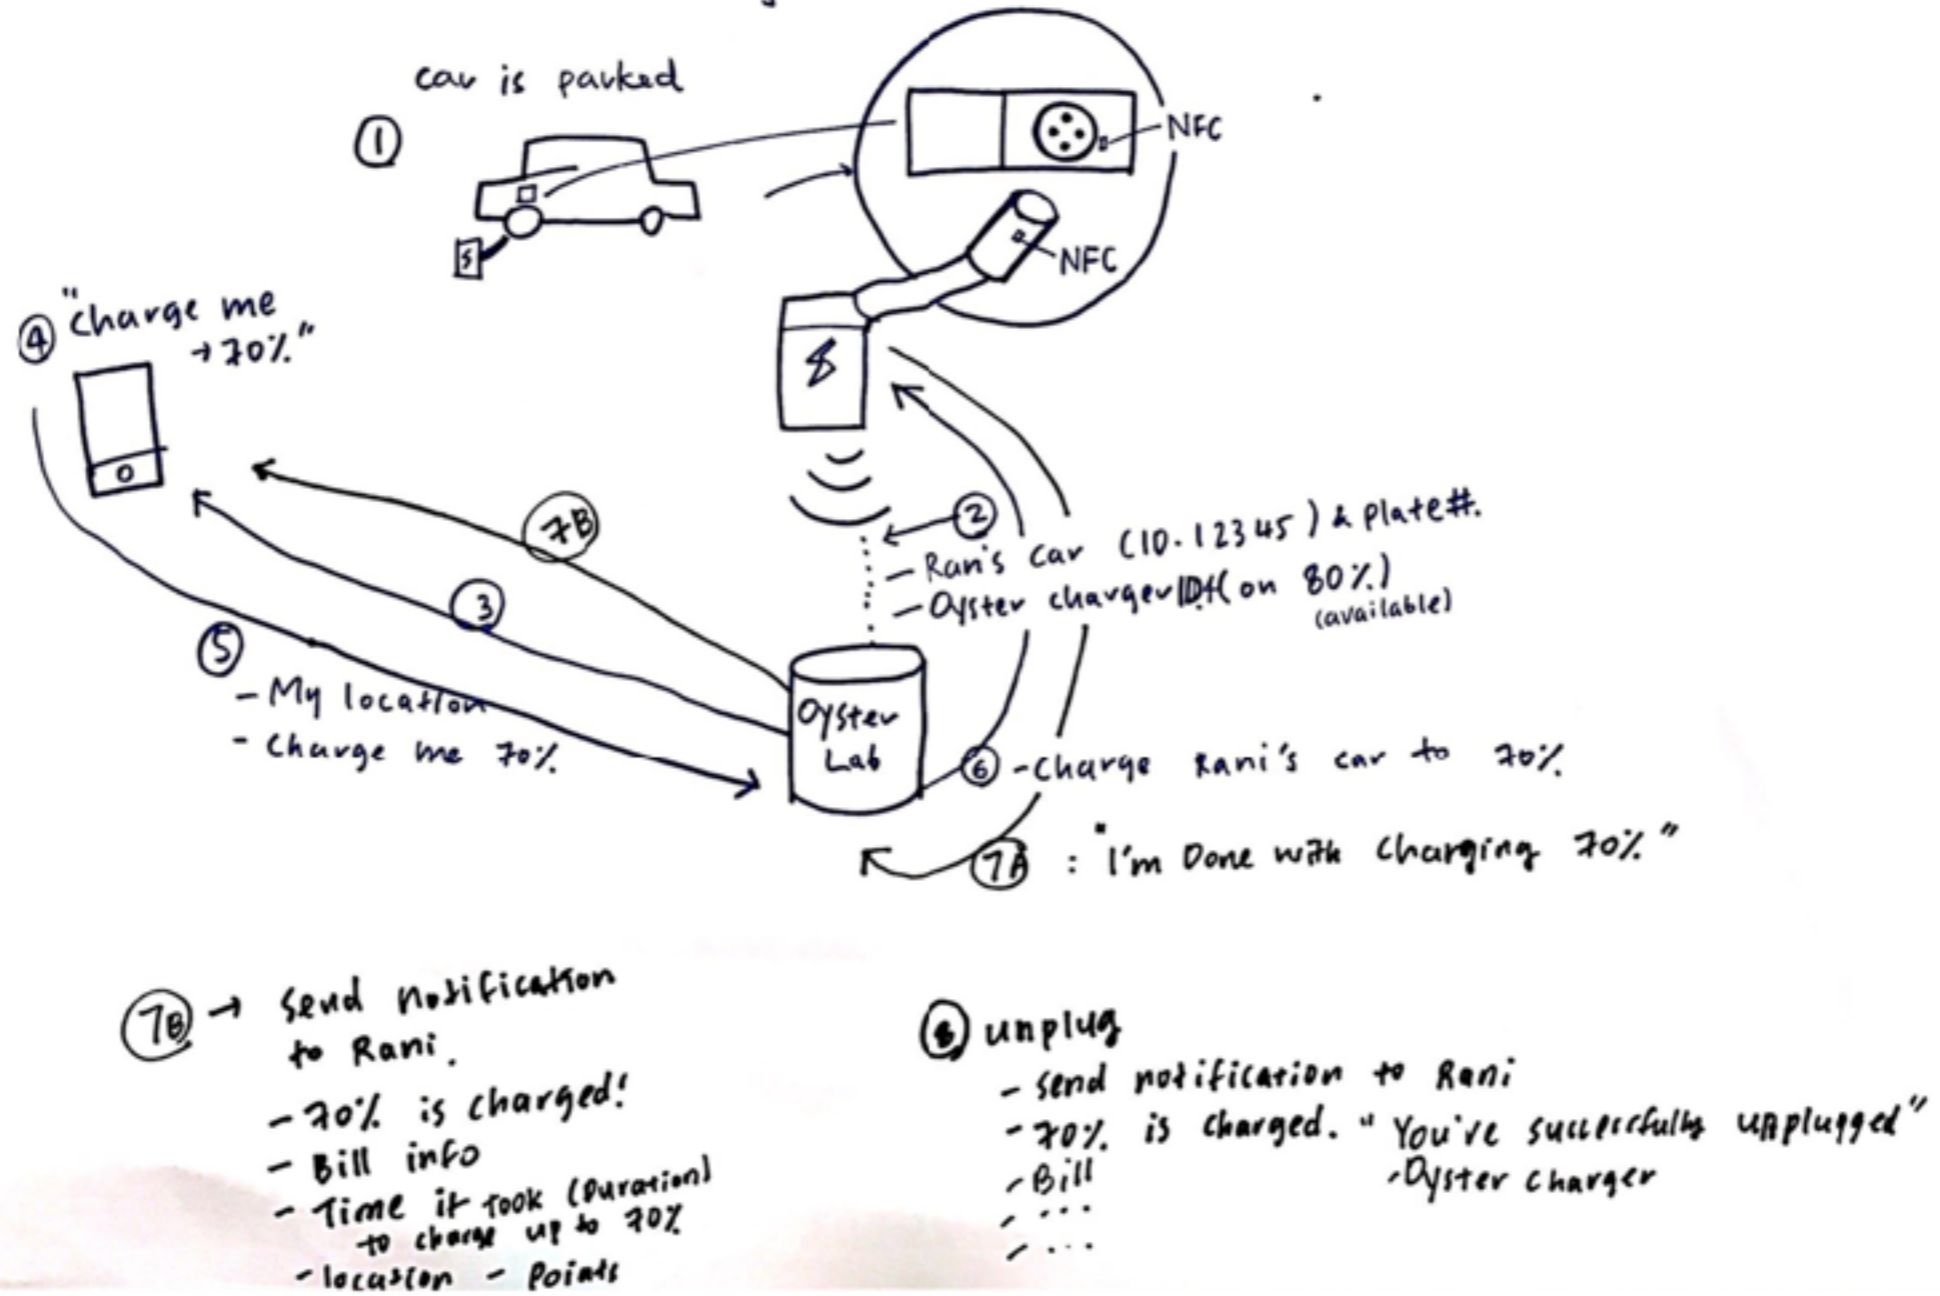 car is parked
①
NFC
NFC
④ "Charge me
→ 70%"
7B
②
- Rani's car (ID.12345) & plate#.
- Oyster charger ID# (on 80%)
(available)
3
⑤
- My location
- Charge me 70%
Oyster
Lab
⑥ - Charge Rani's car to 70%
7A : "I'm Done with Charging 70%"
7B → Send notification
to Rani.
- 70% is charged!
- Bill info
- Time it took (Duration)
to charge up to 70%
- location - Points
⑧ unplug
- send notification to Rani
- 70% is charged. "You've successfully unplugged"
- Bill
- Oyster charger
- ...
- ...